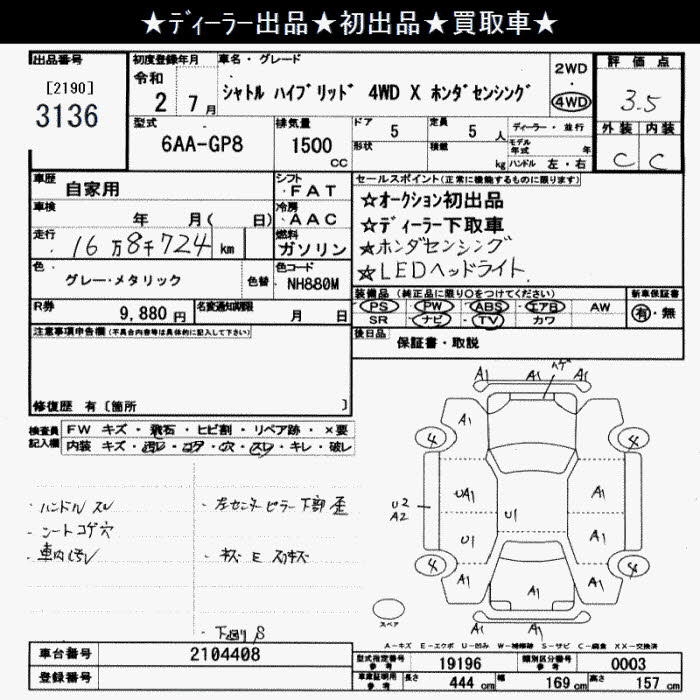 ★ディーラー出品★初出品★買取車★
出品番号
[2190]
3136
初度登録年月
令和
2 7月
車名・グレード
シャトル ハイブリッド 4WD X ホンダセンシング
2WD
4WD
評価点
3.5
外装 内装
C C
型式
6AA-GP8
排気量
1500
cc
ドア 5
形状
定員 5 人
積載 kg
ディーラー・並行
モデル年式 年
ハンドル 左・右
車歴 自家用
車検 年 月( 日)
走行 16万8千724 km
シフト FAT
冷房 AAC
燃料 ガソリン
色 グレー・メタリック
色替
色コード NH880M
R券 9,880円
名変通知期限 月 日
セールスポイント(正常に機能するものに限ります)
☆オークション初出品
☆ディーラー下取車
★ホンダセンシング
★LEDヘッドライト
装備品 (純正品に限り○をつけてください)
PS・PW・ABS・エアB・AW
SR・ナビ・TV・カワ
新車保証書
有・無
後日品 保証書・取説
注意事項申告欄(不具合内容等は具体的に記入して下さい)
修復歴 有〔箇所 〕
検査員記入欄
FW キズ・飛石・ヒビ割・リペア跡・×要
内装 キズ・汚レ・コゲ・穴・スレ・キレ・破レ
・ハンドル スレ
・シートコゲ穴
・車内汚レ
・左センターピラー下部歪
・キズ E スリキズ
・下廻り S
A1 A1 ハゲ A1
A1
4 4
U2
A2
UA1 U1 A1
U1 A1
4 4
A1 A1 A1
A1 A1
スペア
A－キズ E－エクボ U－凹み W－補修跡 S－サビ C－腐食 XX－交換済
車台番号 2104408
登録番号
型式指定番号 参考 19196
類別区分番号 参考 0003
車庫証明用 参考
長さ 444 cm 幅 169 cm 高さ 157 cm